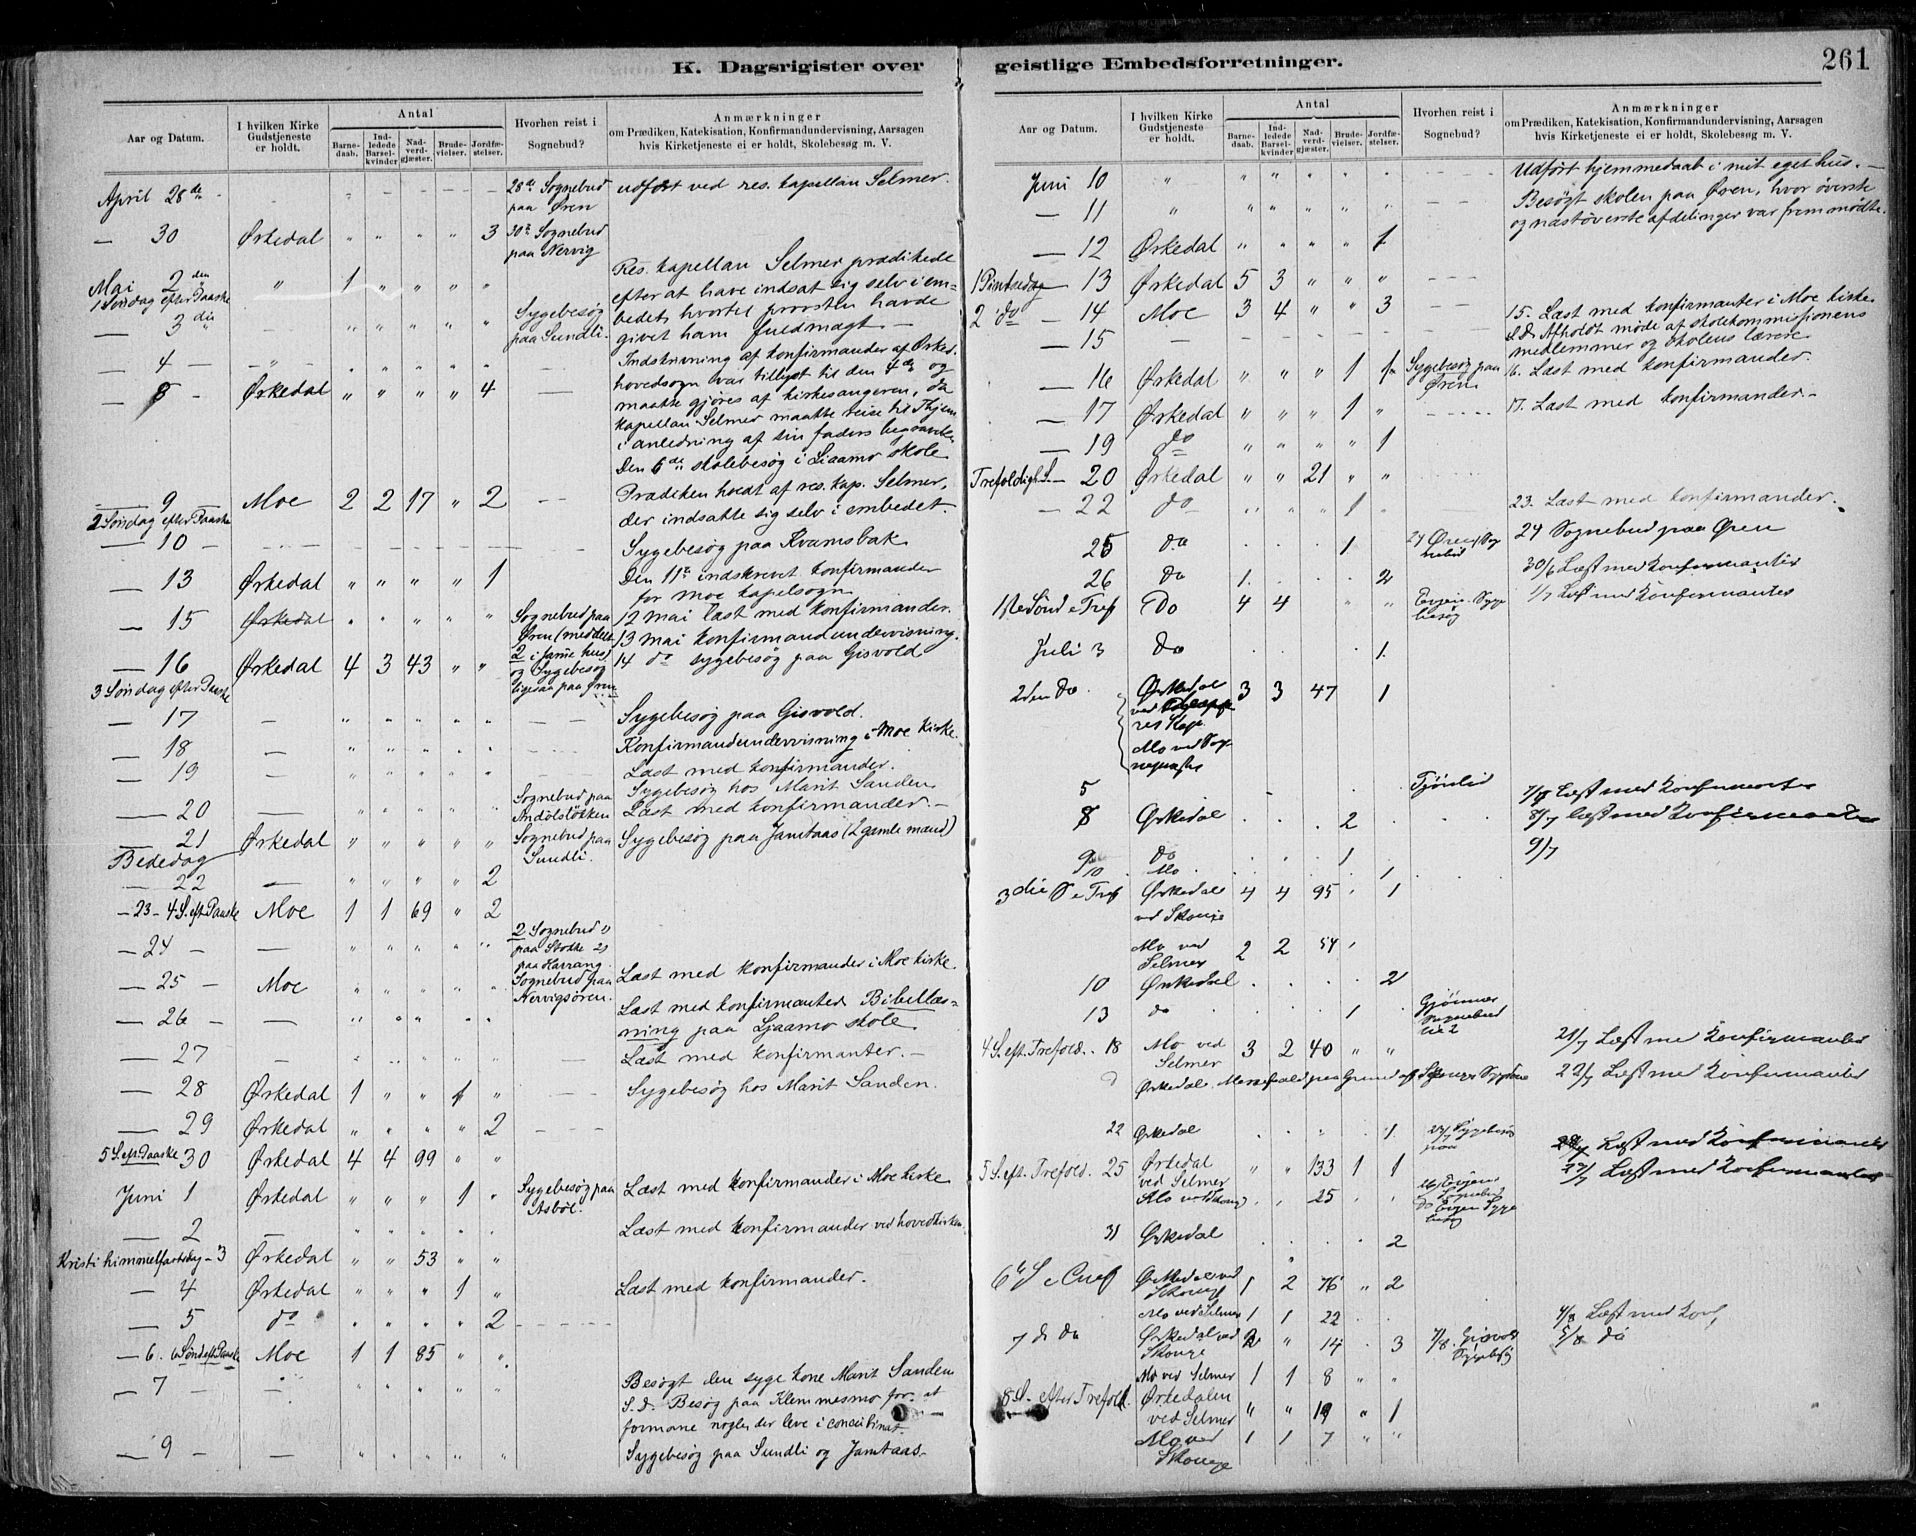 261
K. Dagsrigister over geistlige Embedsforretninger.
Aar og Datum. I hvilken Kirke Gudstjeneste er holdt. Antal Barnedaab. Indledede Barselkvinder Nadverdgjæster. Brudevielser. Jordfæstelser. Hvorhen reist i Sognebud? Anmærkninger om Prædiken, Katekisation, Konfirmandundervisning, Aarsagen hvis Kirketjeneste ei er holdt, Skolebesøg m. V.
April 28de 28de Sognebud paa Øren udført ved res. kapellan Selmer.
30 Ørkedal " " " " 3 30te Sognebud paa Nervig
Mai 2den " 1 " " " "
1 Søndag efter Paaske
Res. kapellan Selmer prædikede
efter at have indsat sig selv i em-
bedet, hvortil provsten havde
givet ham fuldmagt. —
— 3die — " " " " " Sygebesøg paa Sundli.
— 4 — " " " " " "
Indskrivning af konfirmander af Ørked.
hovedsogn var tillyst til den 4de og
maatte gjøres af kirkesangeren, da
kapellan Selmer maatte reise til Thjem
i anledning af sin faders begravelse
— 8 — Ørkedal " " " " 4 —
Den 6te skolebesøg i Liaamo skole
— 9 Moe 2 2 17 " 2 -- Prædiken holdt af res. kap. Selmer,
2 Søndag efter Paaske der indsatte sig selv i embedet.
— 10 — Sygebesøg paa Kvamsbak
— 13 Ørkedal " " " " 1 Den 11te indskrevet konfirmander
for Moe kapelsogn
— 15 Ørkedal " " " " " Sognebud paa 12 mai læst med konfirmander.
Øren (meddelt 13 mai konfirmandundervisning.
— 16 Ørkedal 4 3 43 " " 2 i samme hus) 14 do sygebesøg paa Gisvold
3 Søndag efter Paaske og Sygebesøg ligesaa paa Øren
— 17 — " " " " " — Sygebesøg paa Gisvold.
— 18 — " " " " " Konfirmandundervisning i Moe kirke.
— 19 — " " " " " Læst med konfirmander.
Sygebesøg hos Marit Sanden
— 20 — " " " " " Sognebud paa Andølsløkken Læst med konfirmander. —
— 21 Ørkedal " " " " " Sognebud paa Sundli. Sygebesøg paa Jamtaas (2 gamle mænd)
Bededag
— 22 — " " " " 2
— 23 — 4 S. eft. Paaske Moe 1 1 69 " 2
— 24 — — " " " " " 2 Sognebud 1) paa Stokke 2) paa Harrang.
— 25 — Moe " " " " " Sognebud paa Nervigsøren. Læst med konfirmander i Moe kirke
— 26 — — " " " " " Læst med konfirmanter. Bibellæs-
ning paa Ljaamo skole.
— 27 — " " " " Læst med konfirmanter. —
— 28 Ørkedal 1 " " 1 " — Sygebesøg hos Marit Sanden.
— 29 Ørkedal " " " " 2 — — —
5 S. eft. Paaske 30 Ørkedal 4 4 99 " "
Juni 1 Ørkedal " " " 1 " Sygebesøg paa Asbøl. Læst med konfirmander i Moe kirke
— 2 — " " " " " Læst med konfirmander ved hovedkirken.
Kristi himmelfartsdag — 3 Ørkedal " " 53 " "
— 4 Ørkedal " " " 1 " Læst med konfirmander.
— 5 do " " " " 2 — — —
— 6. 6 Sønd eft. Paaske Moe 1 1 85 " "
— 7 — — " " " " Besøgt den syge kone Marit Sanden
S. d. Besøg paa Klemmesmo for at
formane nogle, der leve i concubinat.
— 9 — — " " " " Sygebesøg paa Sundli og Jamtaas —
Aar og Datum. I hvilken Kirke Gudstjeneste er holdt. Antal Barnedaab. Indledede Barselkvinder Nadverdgjæster. Brudevielser. Jordfæstelser. Hvorhen reist i Sognebud? Anmærkninger om Prædiken, Katekisation, Konfirmandundervisning, Aarsagen hvis Kirketjeneste ei er holdt, Skolebesøg m. V.
Juni 10 " " " " " " — — Udført hjemmedaab i mit eget hus. —
— 11 " " " " " " — — Besøgt skolen paa Øren, hvor øverste
og næstøverste afdelinger var fremmødte.
— 12 Ørkedal " " " " 1
1 Pintsedag — 13 Ørkedal 5 3 " " " — — —
2 do — 14 Moe 3 4 " " 3 — — 15. Læst med konfirmanter i Moe kirke.
— 15 — — — S. d. Afholdt møde af skolekommissionens
medlemmer og skolens lærere
— 16 Ørkedal " " " 1 1 Sygebesøg paa Øren. 16. Læst med konfirmander.
— 17 Ørkedal " " " 1 " — — — 17. Læst med konfirmander. —
— 19 do " " " " 1
Trefoldigh. S. — 20 Ørkedal " " 21 " "
— 22 do " " " 1 " 23. Læst med konfirmander.
25 do 1 24 Sognebud paa Øren
26 do 1 2 30/6 Læst med Konfirmanter
1ste Sønd e Tref Do 4 4 " " 1/7 Læst med Konfirmantes
Juli 3 Do 1
2den do Ørkedal 3 3 47 1
res Kap.
Mo ved Sog-
5 7/7 Læst med Konfirmanter
8 Ørkedal 2 8/7 læst med Konfirmanter
9 do 1 9/7
10 Mo 1
3die S e Tref Ørkedal ved Skouge 4 4 95 1
Mo ved Selmer 2 2 54
10 Ørkedal 2
13 do 1 Sognebud
4 S. eft. Trefold. 18 Mo ved Selmer 3 2 40 " " 21/7 Læst med Konfirmanter
Ørkedal. Messefald paa Grund af Skouges Sygdom 22/7 Læst med Konfirmanter
22 Ørkedal 1 Sygebesøg Læst med Konfirmanter
5 S. eft. Trefold. 25 Ørkedal ved Selmer " " 133 1 1 Læst med Konfirmanter
Mo ved Skouge 25
31 Ørkedal 2
6te S e Tref Ørkedal ved Skouge 1 2 76 " 2
Mo ved Selmer 1 1 22 4/8 Læst med Konf,
7 d do Ørkedal ved Skouge 2 " 14 3 7/8. Gisvold Sygebesøg 5/8 do
Mo ved Selmer 1 1 8 " "
8 S. efter Trefold. Ørkedalen ved Selmer " " 19 " 1
Mo ved Skouge 1 1 7 " "